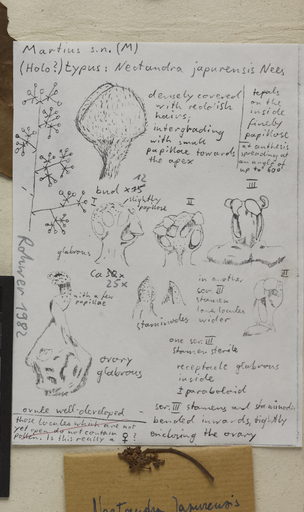 Martius s.n. (M)
(Holo?)typus: Nectandra japurensis Nees
densely covered
with reddish
hairs,
intergrading
with small
papillae towards
the apex
tepals
on the
inside
finely
papillose
at anthesis
spreading at
an angle of
up to 60°
bud
12
I
slightly
papillose
II
III
glabrous
ca
25 x
with a few
papillae
staminodes
in another
ser. II
stamen
locules
wider
II
one ser. III
stamen sterile
ovary
glabrous
receptacle glabrous
inside
± paraboloid
ovule well-developed
those locules which are not
yet open do not contain
pollen. Is this really a ♀?
ser. III stamens and staminodes
bended inwards, tightly
enclosing the ovary
Rohwer 1982
Nectandra Japurensis